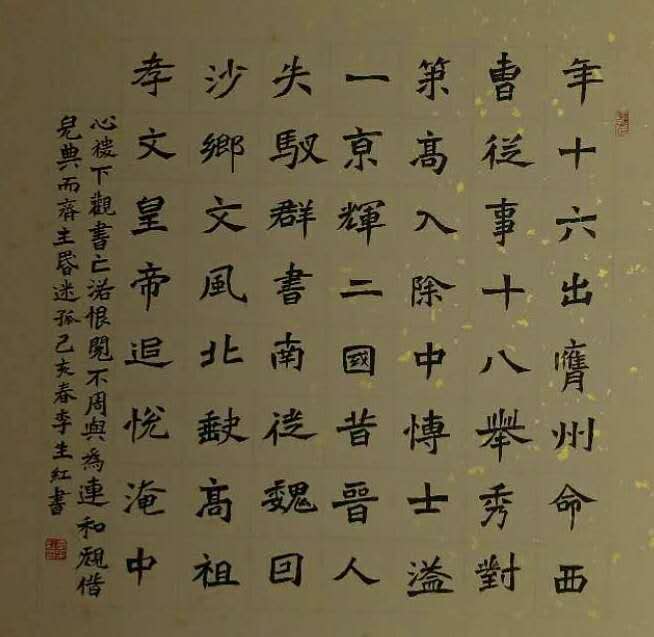 年十六出膺州命西
曹從事十八舉秀對
策高入除中博士溢
一京輝二國昔晉人
失馭群書南徙魏囙
沙鄉文風北缺高祖
孝文皇帝追悅淹中
心稷下觀書亡落恨閱不周與為連和規借
完典而齊主昏迷孤己亥春李生紅書